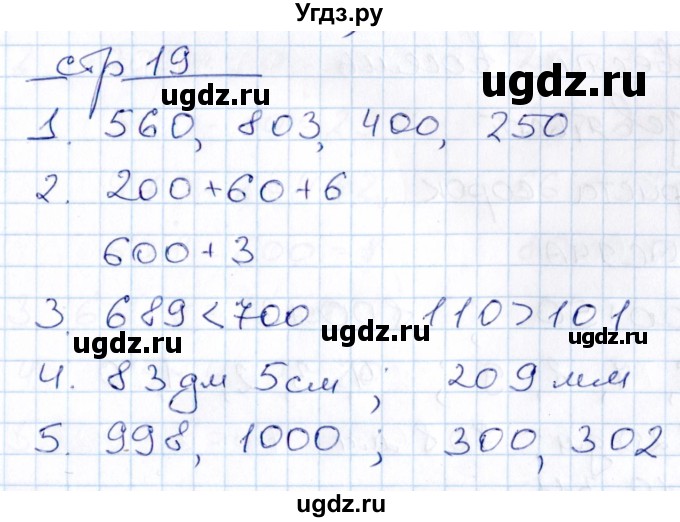 Угдз.ру
стр 19
ugdz.ru
ugdz.ru
1. 560, 803, 400, 250
2. 200+60+6
600+3
3. 689<700 110>101
ugdz.ru ugdz.ru ugdz.ru
4. 83дм 5см; 209мм
5. 998, 1000; 300, 302
ugdz.ru